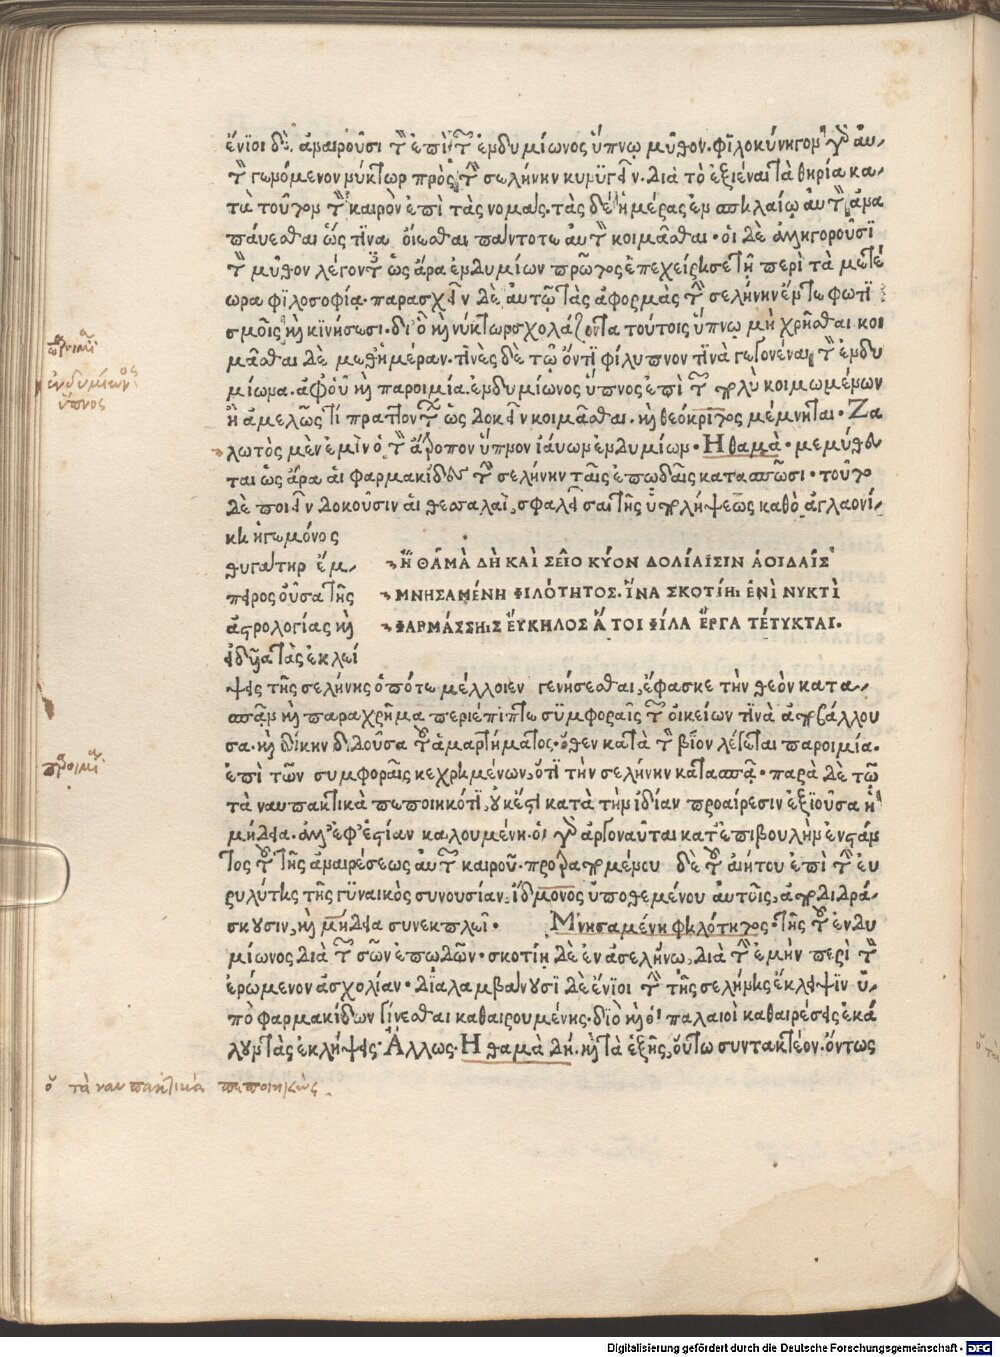 ἔνιοι δὲ ἀναιροῦσι τὸν ἐπὶ τῷ ἐνδυμίωνος ὕπνῳ μῦθον. φιλοκύνηγον γὰρ αὐ-
τὸν γενόμενον νύκτωρ πρὸς τὴν σελήνην κυνηγεῖν. διὰ τὸ ἐξιέναι τὰ θηρία κα-
τὰ τοῦτον τὸν καιρὸν ἐπὶ τὰς νομάς. τὰς δὲ ἡμέρας ἐν σπηλαίῳ αὐτὸν ἀνα
παύεσθαι ὥς τινα οἴεσθαι πάντοτε αὐτὸν κοιμᾶσθαι. οἱ δὲ ἀλληγοροῦσι
τὸν μῦθον λέγοντες ὡς ἄρα ἐνδυμίων πρῶτος ἐπεχείρησε τῇ περὶ τὰ μετέ
ωρα φιλοσοφίᾳ. παρασχεῖν δὲ αὐτῷ τὰς ἀφορμὰς τὴν σελήνην ἔν τε φωτι
σμοῖς καὶ κινήσεσι. διὸ καὶ νύκτωρ σχολάζοντα τούτοις ὕπνῳ μὴ χρῆσθαι κοι
μᾶσθαι δὲ μεθημέραν. τινὲς δὲ τῷ ὄντι φίλυπνον τινὰ γεγονέναι τὸν ἐνδυ
μίωνα. ἀφ' οὗ καὶ παροιμία. ἐνδυμίωνος ὕπνος ἐπὶ τῶν πολὺ κοιμωμένων
ἢ ἀμελῶς τί πραττόντων ὡς δοκεῖν κοιμᾶσθαι. καὶ θεόκριτος μέμνηται. Ζα
λωτὸς μὲν ἐμὶν ὁ τὸν ἄτροπον ὕπνον ἰαύων ἐνδυμίων. Η θαμὰ. μεμύθευ
ται ὡς ἄρα αἱ φαρμακίδες τὴν σελήνην ταῖς ἐπῳδαῖς κατασπῶσι. τοῦτο
δὲ ποιεῖν δοκοῦσιν αἱ θεσσαλαὶ, σφαλεῖσαι τῆς ὑπολήψεως καθὸ ἀγλαονί-
κη ἡγεμόνος
θυγάτηρ ἔμ-
πειρος οὖσα τῆς
ἀστρολογίας καὶ
εἰδυῖα τὰς ἐκλεί
Ἦ ΘΑΜΑ ΔΗ ΚΑΙ ΣΕΙΟ ΚΥΟΝ ΔΟΛΙΑΙΣΙΝ ΑΟΙΔΑΙΣ
ΜΝΗΣΑΜΕΝΗ ΦΙΛΟΤΗΤΟΣ. ἽΝΑ ΣΚΟΤΙΗΙ ΕΝΙ ΝΥΚΤΙ
ΦΑΡΜΑΣΣΗΙΣ ΕΥΚΗΛΟΣ Ἅ ΤΟΙ ΦΙΛΑ ΕΡΓΑ ΤΕΤΥΚΤΑΙ.
ψεις τῆς σελήνης ὁπότε μέλλοιεν γενήσεσθαι, ἔφασκε τὴν θεὸν κατα-
σπᾶν καὶ παραχρῆμα περιέπιπτε συμφοραῖς τῶν οἰκείων τινὰ ἀποβάλλου
σα. καὶ δίκην διδοῦσα τοῦ ἁμαρτήματος. ὅθεν κατὰ τὸν βίον λέγεται παροιμία.
ἐπὶ τῶν συμφοραῖς κεχρημένων, ὅτι τὴν σελήνην κατασπᾷ. παρὰ δὲ τῷ
τὰ ναυπακτικὰ πεποιηκότι, οὐκ ἔστι κατὰ τὴν ἰδίαν προαίρεσιν ἐξιοῦσα ἡ
μήδεια. ἀλλ' ἐφ' ἑστίαν καλουμένη. οἱ γὰρ ἀργοναῦται κατ' ἐπιβουλὴν ἐνστάν
τος τοῦ τῆς ἀναιρέσεως αὐτῶν καιροῦ. προτραπομένου δὲ τοῦ αἰήτου ἐπὶ τὴν εὐ
ρυλύτης τῆς γυναικὸς συνουσίαν, ἴδμονος ὑποθεμένου αὐτοῖς, ἀποδιδρά-
σκουσιν, καὶ μήδεια συνεκπλεῖ. Μνησαμένη φιλότητος. τῆς τοῦ ἐνδυ
μίωνος διὰ τῶν σῶν ἐπῳδῶν. σκοτίῃ δὲ ἐν ἀσελήνῳ, διὰ τὴν ἐμὴν περὶ τὸν
ἐρώμενον ἀσχολίαν. διαλαμβάνουσι δὲ ἔνιοι τὴν τῆς σελήνης ἔκλειψιν ὑ-
πὸ φαρμακίδων γίνεσθαι καθαιρουμένης. διὸ καὶ οἱ παλαιοὶ καθαιρέσεις ἐκά
λουν τὰς ἐκλήψεις. Ἄλλως. Η θαμὰ δή. καὶ τὰ ἑξῆς, οὕτω συντακτέον. ὄντως
παροιμία
ἐνδυμίωνος
ὕπνος
παροιμία
ὁ τὰ ναυπακτικὰ πεποιηκώς.
Digitalisierung gefördert durch die Deutsche Forschungsgemeinschaft - DFG